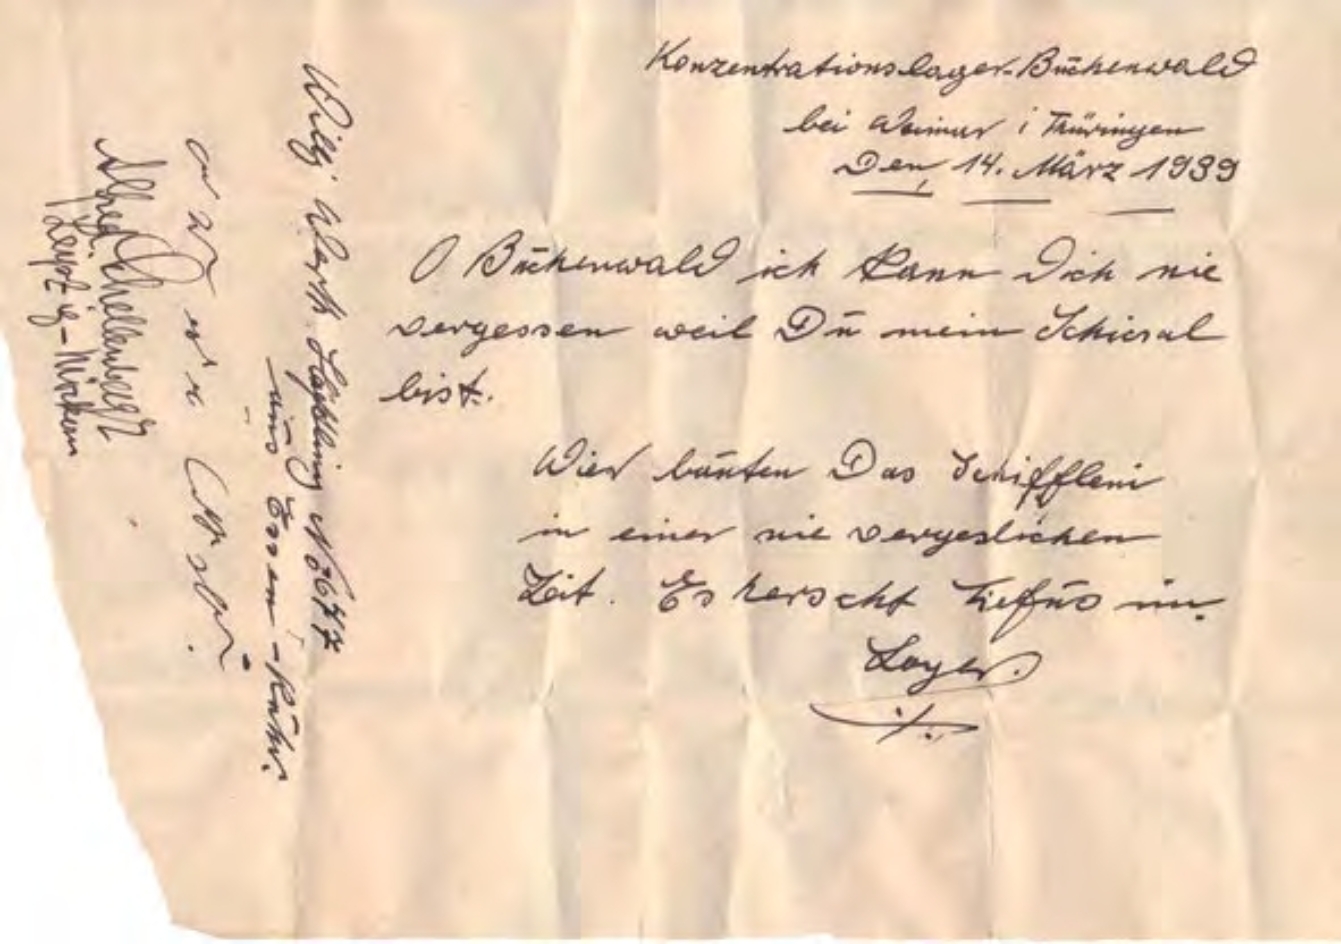 Konzentrationslager-Buchenwald
bei Weimar i Thüringen
Den, 14. März 1939
O Buchenwald ich kann Dich nie
vergessen weil Du mein Schicsal
bist.
Wier bauten Das Schifflein
in einer nie vergeslichen
Zeit. Es herscht Tiefus im.
Lager.
Willi Werth. Häftling N
aus Essen-Ruhr.
Alfred Schellenberger
Leipzig-